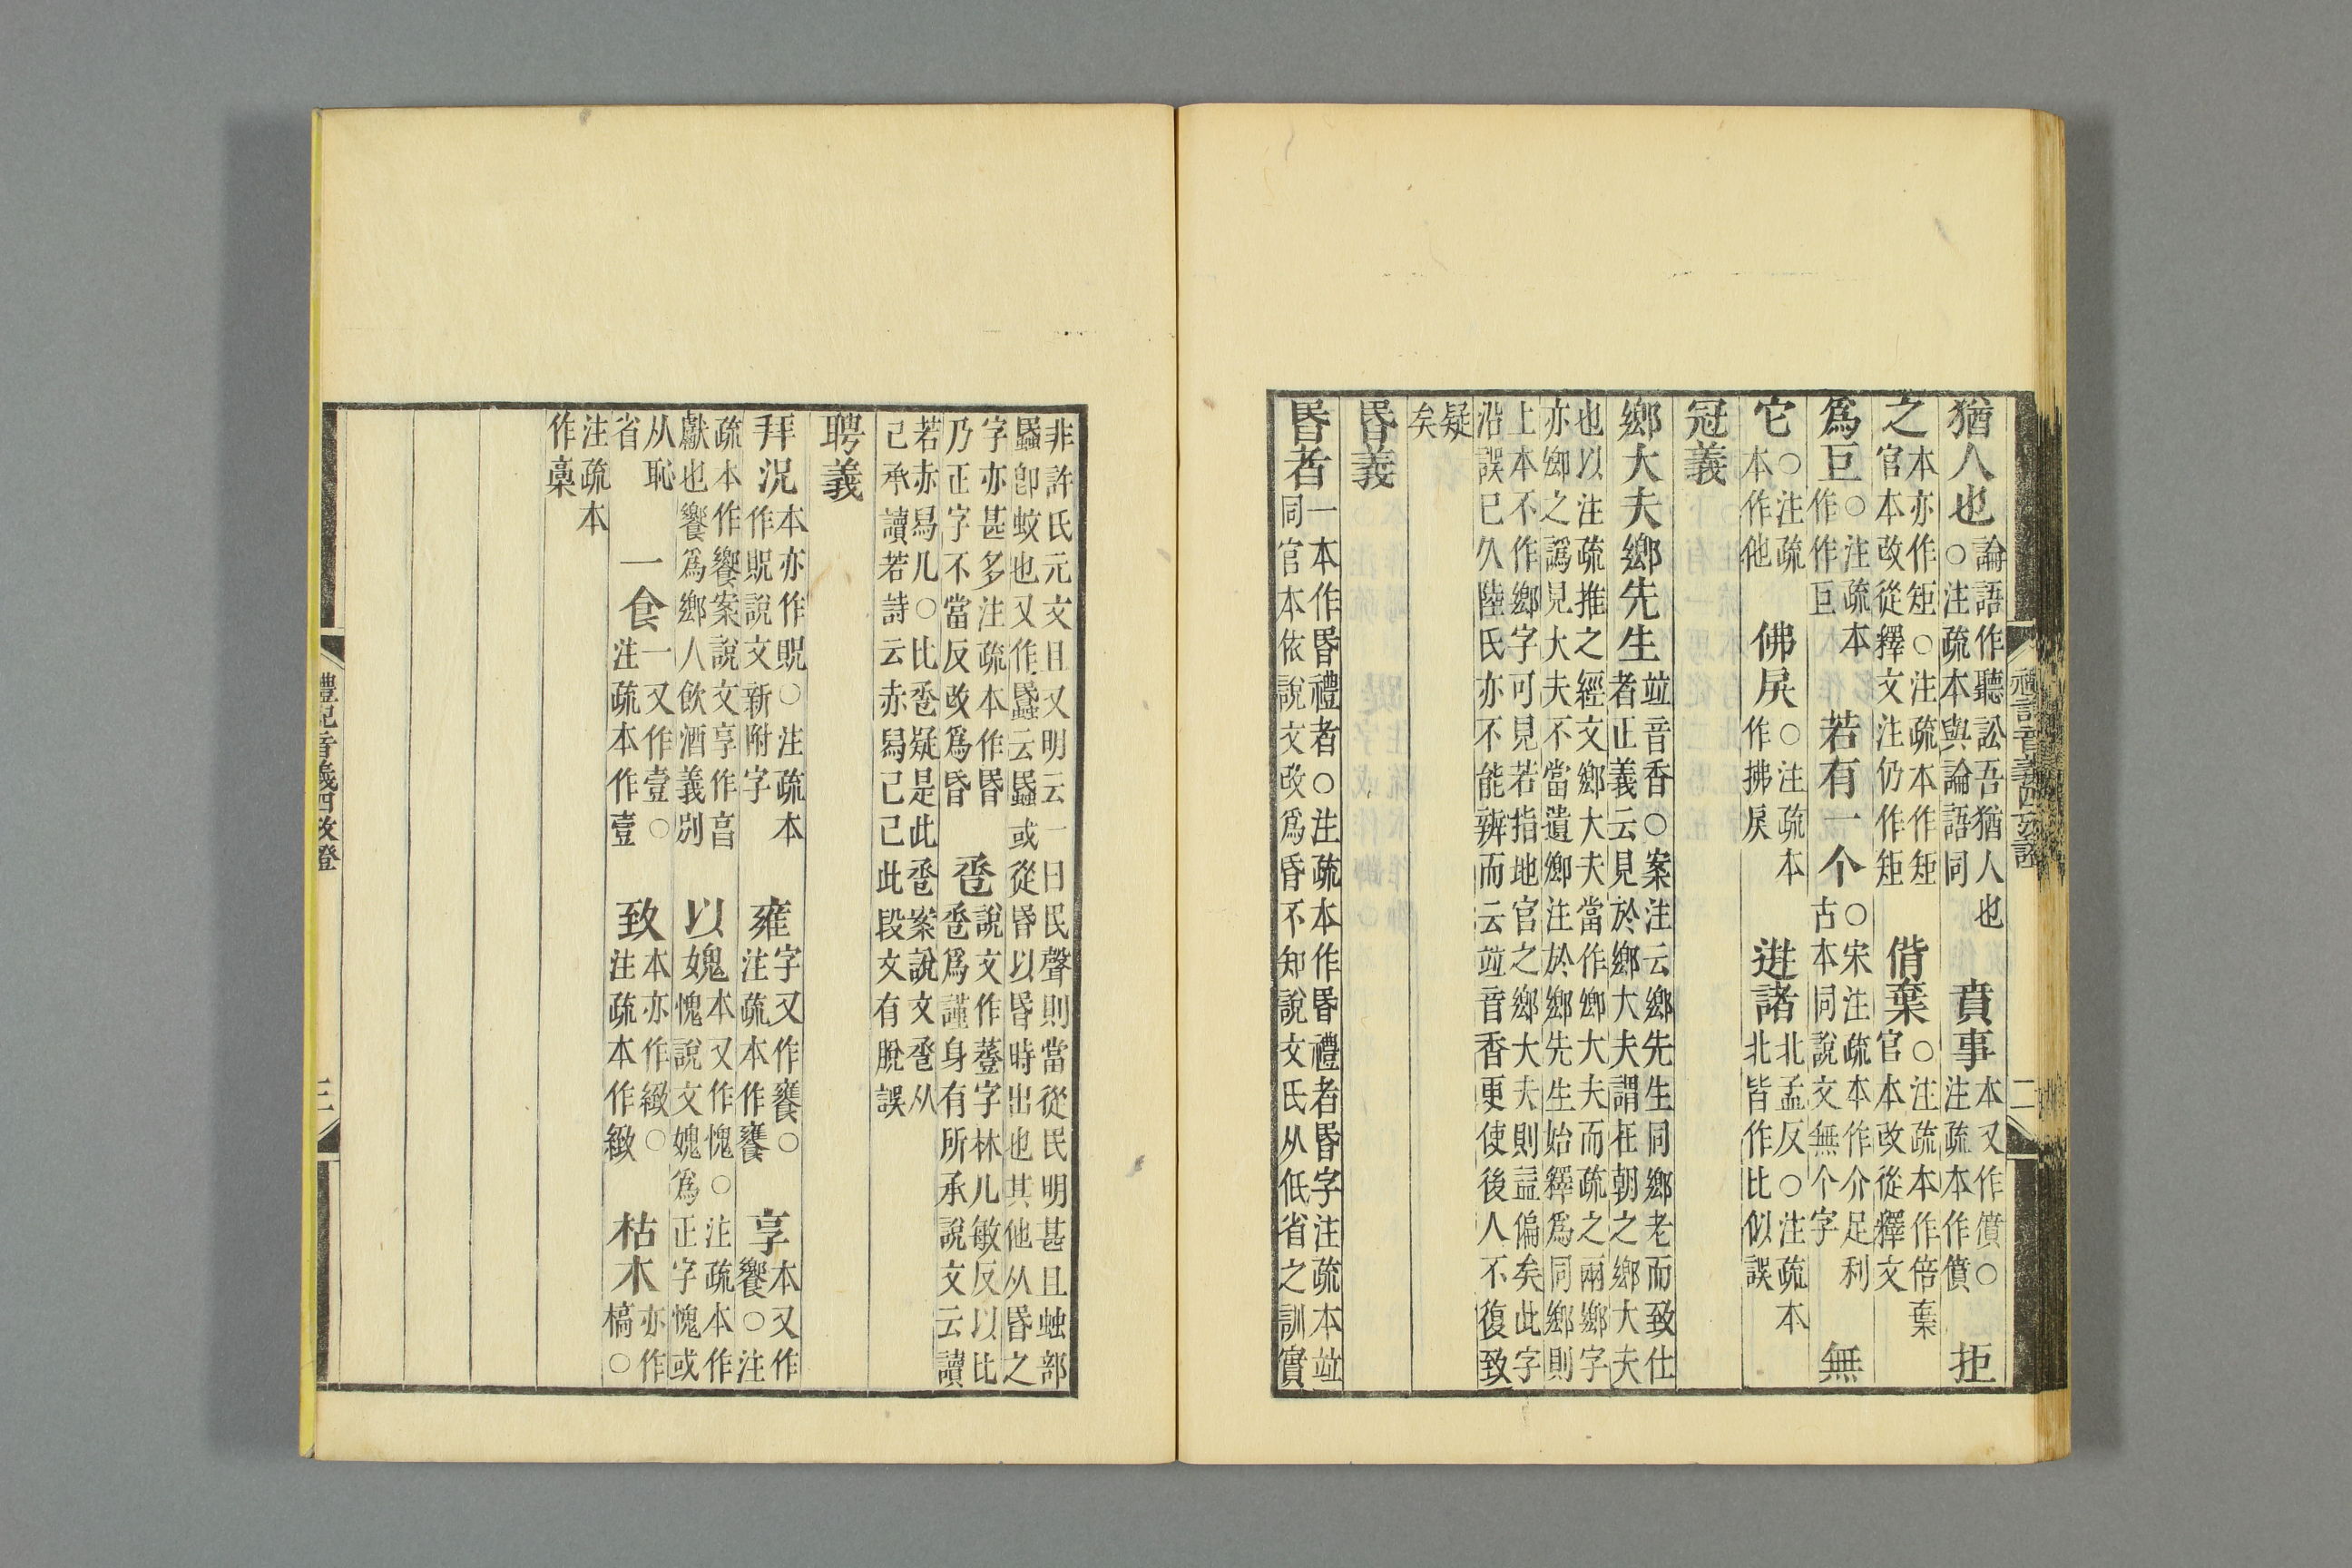 猶人也論語作聽訟吾猶人也○注疏本與論語同 賁事本又作僨○注疏本作僨 拒
之本亦作矩○注疏本作矩官本改從釋文注仍作矩 偝棄○注疏本作倍棄官本改從釋文
爲巨○注疏本作作巨 若有一个○宋注疏本作介足利古本同說文無个字 無
它○注疏本作他 佛戾○注疏本作拂戾 迸諸北孟反○注疏本北皆作比似誤
冠義
鄉大夫鄉先生竝音香○案注云鄉先生同鄉老而致仕者正義云見於鄉大夫謂在朝之鄉大夫
也以注疏推之經文鄉大夫當作鄉大夫而疏之兩鄉字亦鄉之譌見大夫不當遺鄉注於鄉先生始釋爲同鄉則
上本不作鄉字可見若指地官之鄉大夫則益偏矣此字沿誤已久陸氏亦不能辨而云竝音香更使後人不復致
疑矣
昬義
昬者一本作昬禮者○注疏本作昬禮者昬字注疏本竝同官本依說文改爲昏不知說文氏从低省之訓實
禮記音義四攷證 二
非許氏元文且又明云一曰民聲則當從民明甚且䖵部䘇卽蚊也又作蟁云䘇或從昬以昬時出也其他从昬之
字亦甚多注疏本作昬乃正字不當反改爲昏 卺說文作䔲字林几敏反以比巹爲謹身有所承說文云讀
若赤舄几○比巹疑是此巹案說文卺从己承讀若詩云赤舄己己此段文有脫誤
聘義
拜況本亦作貺○注疏本作貺說文新附字 雍字又作饔○注疏本作饔 享本又作饗○注
疏本作饗案說文享作亯獻也饗爲鄉人飲酒義別 以媿本又作愧○注疏本作愧說文媿爲正字愧或
从恥省 一食一又作壹○注疏本作壹 致本亦作緻○注疏本作緻 枯木亦作槁○
注疏本作槀
禮記音義四攷證 三